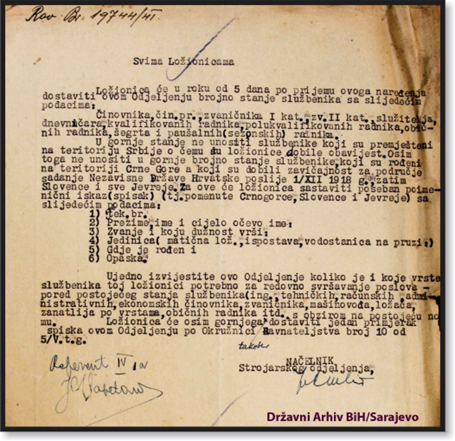 Rav. Br. 19744/41.
Svima Ložionicama
Ložionica će u roku od 5 dana po prijemu ovoga naređenja
dostaviti ovom Odjeljenju brojno stanje službenika sa slijedećim
podacima:
Činovnika, čin.pr., zvaničnika I kat., zv.II kat., služitelja,
dnevničara, kvalifikovanih radnika, polukvalifikovanih radnika, obič-
nih radnika, šegrta i paušalnih(sezonskih) radnika.
U gornje stanje ne unositi službenike koji su premješteni
na teritoriju Srbije o čemu da ložionice dobile obavijest. Osim
toga ne unositi u gornje brojno stanje službenike, koji su rođeni
na teritoriji Crne Gore a koji su dobili zavičajnost za područje
sadanje Nezavisne Države Hrvatske poslije 1/XII 1918 g., zatim
Slovence i sve Jevreje. Za ove će ložionica sastaviti poseban poime-
nični iskaz(spisak) (tj. pomenute Crnogorce, Slovence i Jevreje) sa
slijedećim podacima:
1) tek.br.
2) Prezime, ime i cijelo očevo ime:
3) Zvanje i koju dužnost vrši:
4) Jedinica( matična lož., ispostava, vodostanica na pruzi:)
5) Gdje je rođen i
6) Opaska.
Ujedno izvijestite ovo Odjeljenje koliko je i koje vrste
službenika toj ložionici potrebno za redovno svršavanje poslova -
pored postojećeg stanja službenika(ing., tehničkih, računskih admi-
nistrativnih, ekonomskih činovnika, zvaničnika, mašinovođa, ložača,
zanatlija po vrstama, običnih radnika itd.. s obzirom na postojeću no
mu.
Ložionica će osim gornjega, dostaviti jedan primjerak
spiska ovom Odjeljenju po Okružnici Ravnateljstva broj 10 od
5/V.t.g.
takođe
Referent IV 1a
NAČELNIK
Strojarskog odjeljenja,
Državni Arhiv BiH/Sarajevo